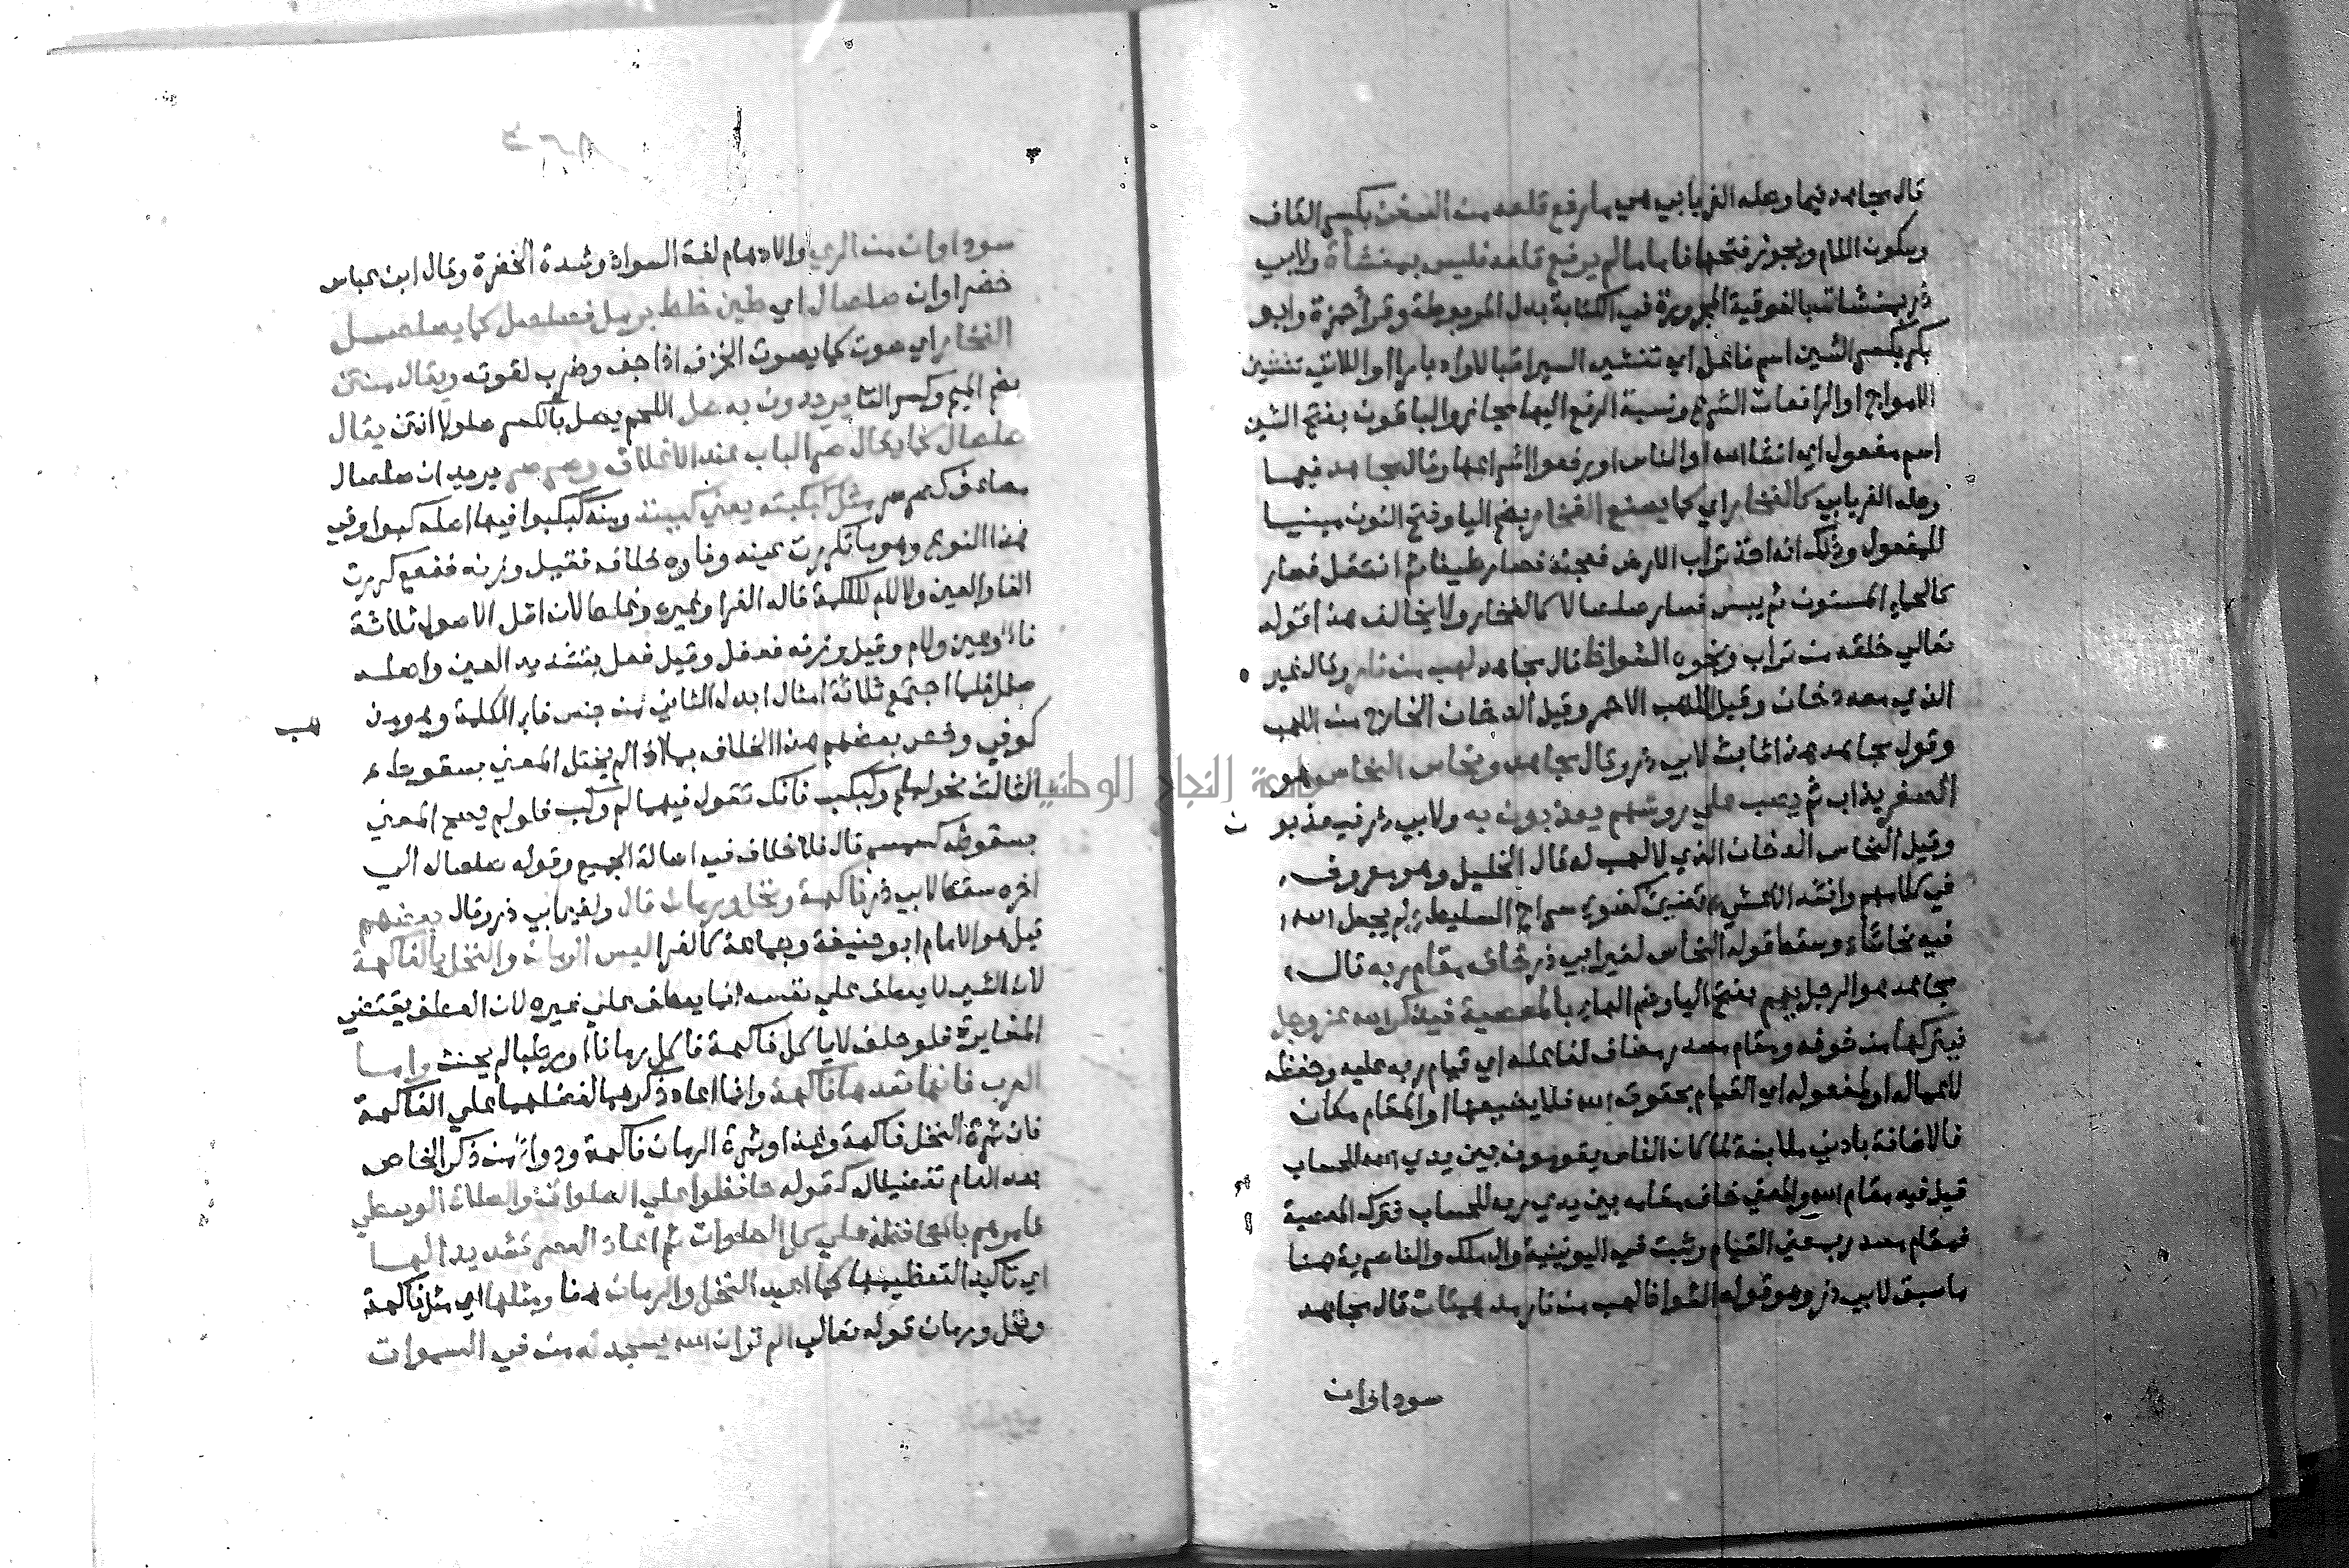 قال مجاهد فيما وصله الفريابي هي ما رفع قلعه من السفن بكسر القاف
وسكون اللام ويجوز فتحها فاما ما لم يرفع قلعه فليس بمنشأة ولابي
ذر بمنشات بالفوقية المجرورة في الكتابة بدل المربوطة وقرأ حمزة وابو
بكر بكسر الشين اسم فاعل اي تنشئ السير اقبالا وادبارا او اللاتي تنشئن
الامواج او الرافعات الشرع ونسبة الرفع اليها مجاز والباقون بفتح الشين
اسم مفعول اي انشاا الله او الناس او رفعوا شراعها وقال مجاهد فيما
وصله الفريابي كالفخار اي كما يصنع الفخار بضم اليا وفتح النون مبنيا
للمفعول وذلك انه اخذ تراب الارض فعجنه فصار طينا ثم انتقل فصار
كالحماء المسنون ثم يبس فصار صلصالا كالفخار ولا يخالف هذا قوله
تعالي خلقه من تراب ونحوه الشواظ قال مجاهد لهب من نار وقال غير
الذي معه دخان وقيل اللهب الاحمر وقيل الدخان الخارج من اللهب
وقول مجاهد هذا ثابت لابي ذر وقال مجاهد ونحاس النحاس هو
الصفر يذاب ثم يصب علي روسهم يعذبون به ولابي ذر فيعذبو ن
وقيل النحاس الدخان الذي لا لهب له قال الخليل وهو معروف
في كلامهم وانشد الاعشي تضيئ كضوء سراج السليط لم يجعل الله
فيه نحاسا وسقط قوله النحاس لغير ابي ذر خاف مقام ربه قال
مجاهد هو الرجل يهم بفتح اليا وضم الهاء بالمعصية فيذكر الله عز وجل
فيتركها من خوفه ومقام مصدر مضاف لفاعله اي قيام ربه عليه وحفظه
لاعماله او لمفعوله اي القيام بحقوق الله فلا يضيعها او المقام مكان
فالاضافة بادني ملابسة لما كان الناس يقومون بين يدي الله للحساب
قيل فيه مقام الله والمعني خاف مقامه بين يدي ربه للحساب فترك المعصية
فمقام مصدر بمعني القيام وثبت في اليونينية وال ملك والناصرية هنا
ما سبق لابي ذر وهو قوله الشواظ لهب من نار مدهامتان قال مجاهد
سوداوان
سوداوان من الري والادهام لغة السواد وشدة الخضرة وقال ابن عباس
خضراوان صلصال اي طين خلط برمل فصلصل كما يصلصل
الفخار اي صوت كما يصوت الخزف اذا جف وضرب لقوته ويقال منتن
بضم الميم وكسر التا يريدون به صل اللحم يصل بالكسر صلولا انتن يقال
صلصال كما يقال صر الباب عند الاغلاق وصرصر يريد ان صلصال
مضاعف كصرصر مثل كبكبته يعني كببته ومنه كبكبوا فيها اصله كبوا وفي
هذا النوع وهو ما تكررت عينه وفاوه خلاف فقيل وزنه فعفع كررت
الفا والعين ولا لام للكلمة قاله الفرا وغيره وغلط لان اقل الاصول ثلاثة
فاء وعين ولام وقيل وزنه فعفل وقيل فعل بتشديد العين واصله
صلل فلما اجتمع ثلاثة امثال ابدل الثاني من جنس فاء الكلمة وهو مذ هب
كوفي وخص بعضهم هذا الخلاف بما اذا لم يختل المعني بسقوط
الثالث نحو لملم وكبكب فانك تقول فيهما لم وكب فلو لم يصح المعني
بسقوطه كسمسم قال فلا خلاف في اصالة الجميع وقوله صلصال الي
اخره سقط لابي ذر فاكهة ونخل ورمان قال ولغير ابي ذر وقال بعضهم
قيل هو الامام ابو حنيفة وجماعة كالفرا ليس الرمان والنخل بالفاكهة
لان الشي لا يعطف علي نفسه انما يعطف علي غيره لان العطف يقتضي
المغايرة فلو حلف لا ياكل فاكهة فاكل رمانا او رطبا لم يحنث واما
العرب فانها تعدهما فاكهة وانما اعاد ذكرهما لفضلهما علي الفاكهة
فان ثمرة النخل فاكهة وغذا وثمرة الرمان فاكهة ودواء من ذكر الخاص
بعد العام تفضيلا له كقوله حافظوا علي الصلوات والصلاة الوسطي
فامرهم بالمحافظة علي كل الصلوات ثم اعاد العصر تشديدا لها
اي تاكيدا لتعظيمها كما اعيد النخل والرمان هنا ومثلها اي مثل فاكهة
ونخل ورمان قوله تعالي الم تر ان الله يسجد له من في السموات
جامعة النجاح الوطنية